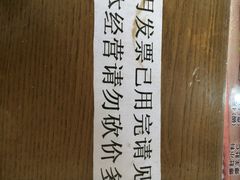 月发票已用完请见
本经营请勿砍价多